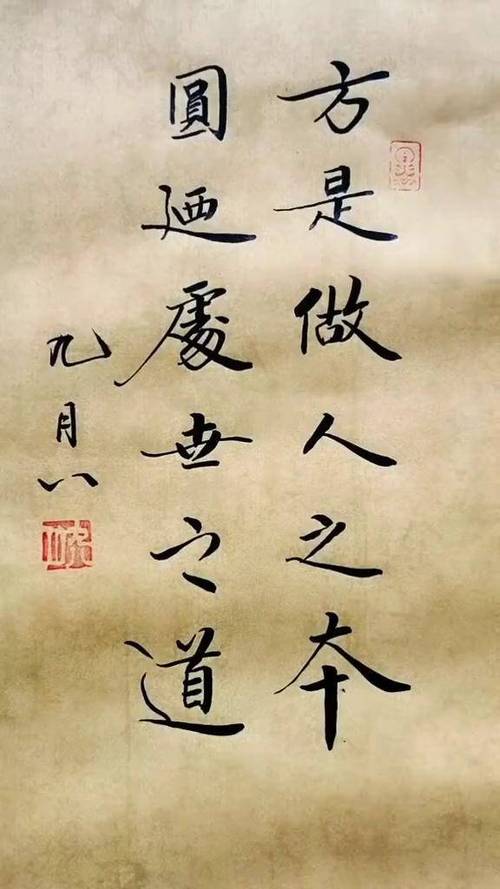 方是做人之本
圓廼處世之道
九月八